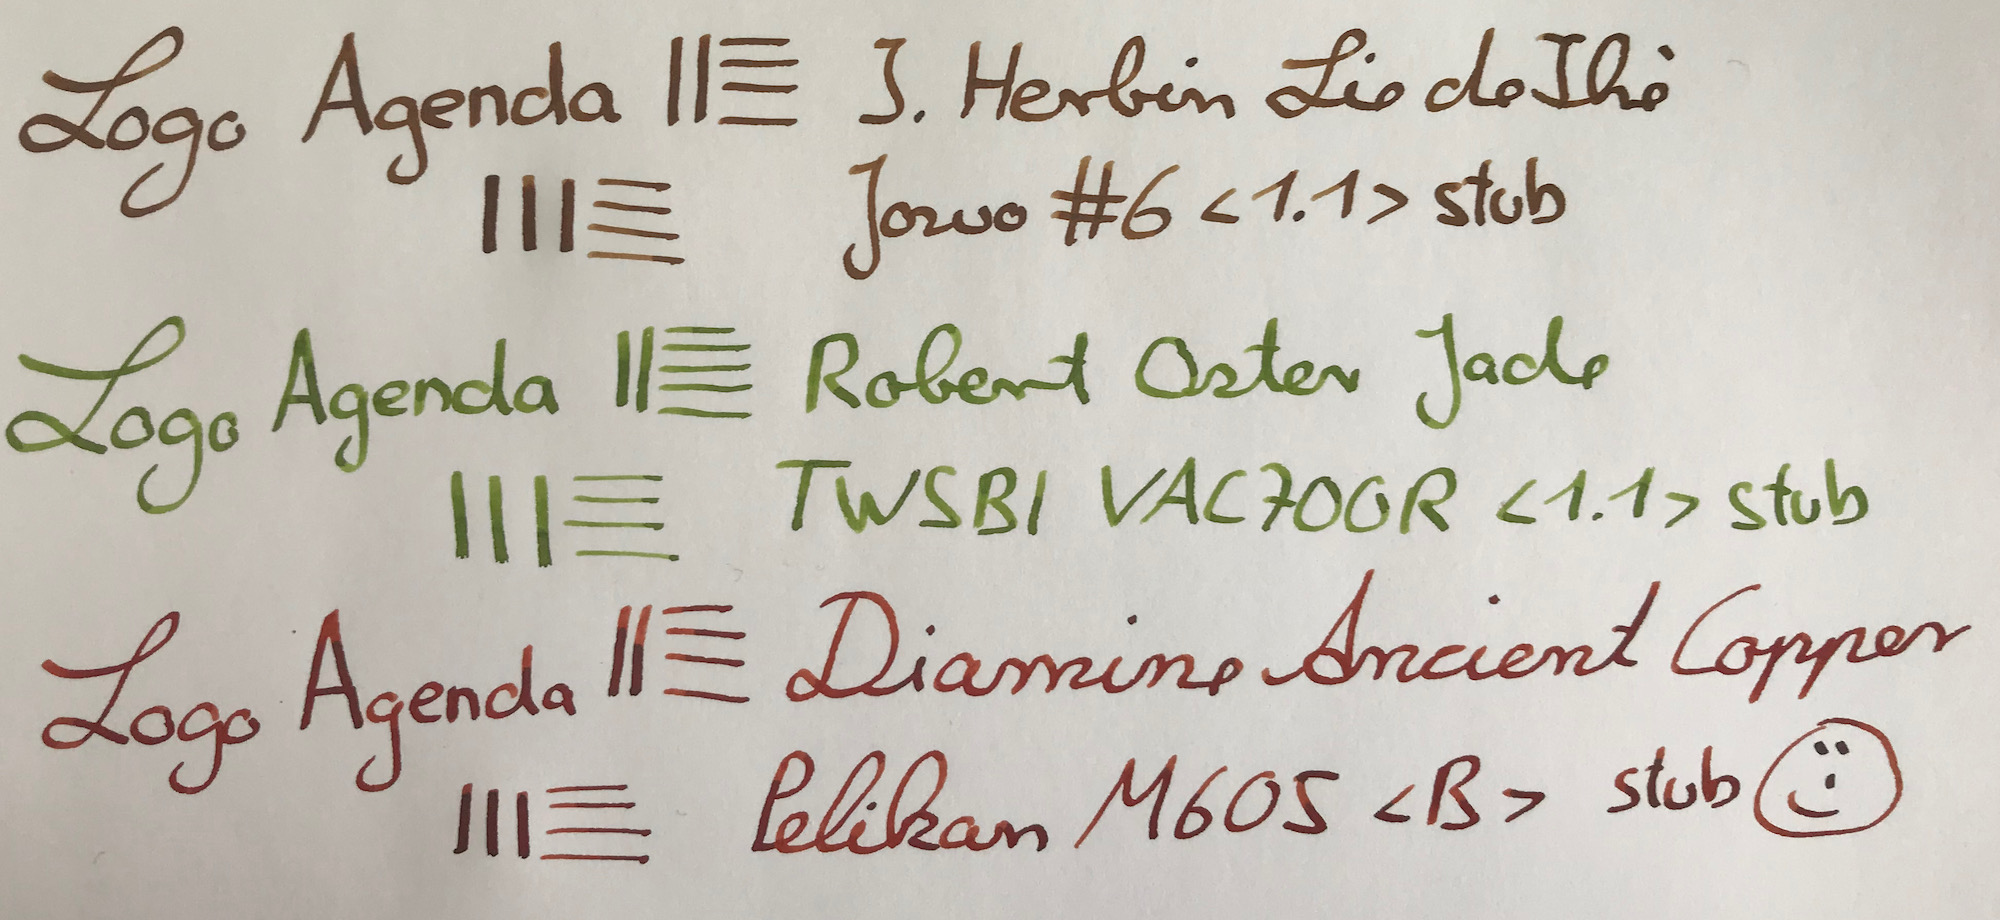 Logo Agenda J. Herbin Lie de Thé
Jowo #6 <1.1> stub
Logo Agenda Robert Oster Jade
TWSBI VAC700R <1.1> stub
Logo Agenda Diamine Ancient Copper
Pelikan M605 <B> stub